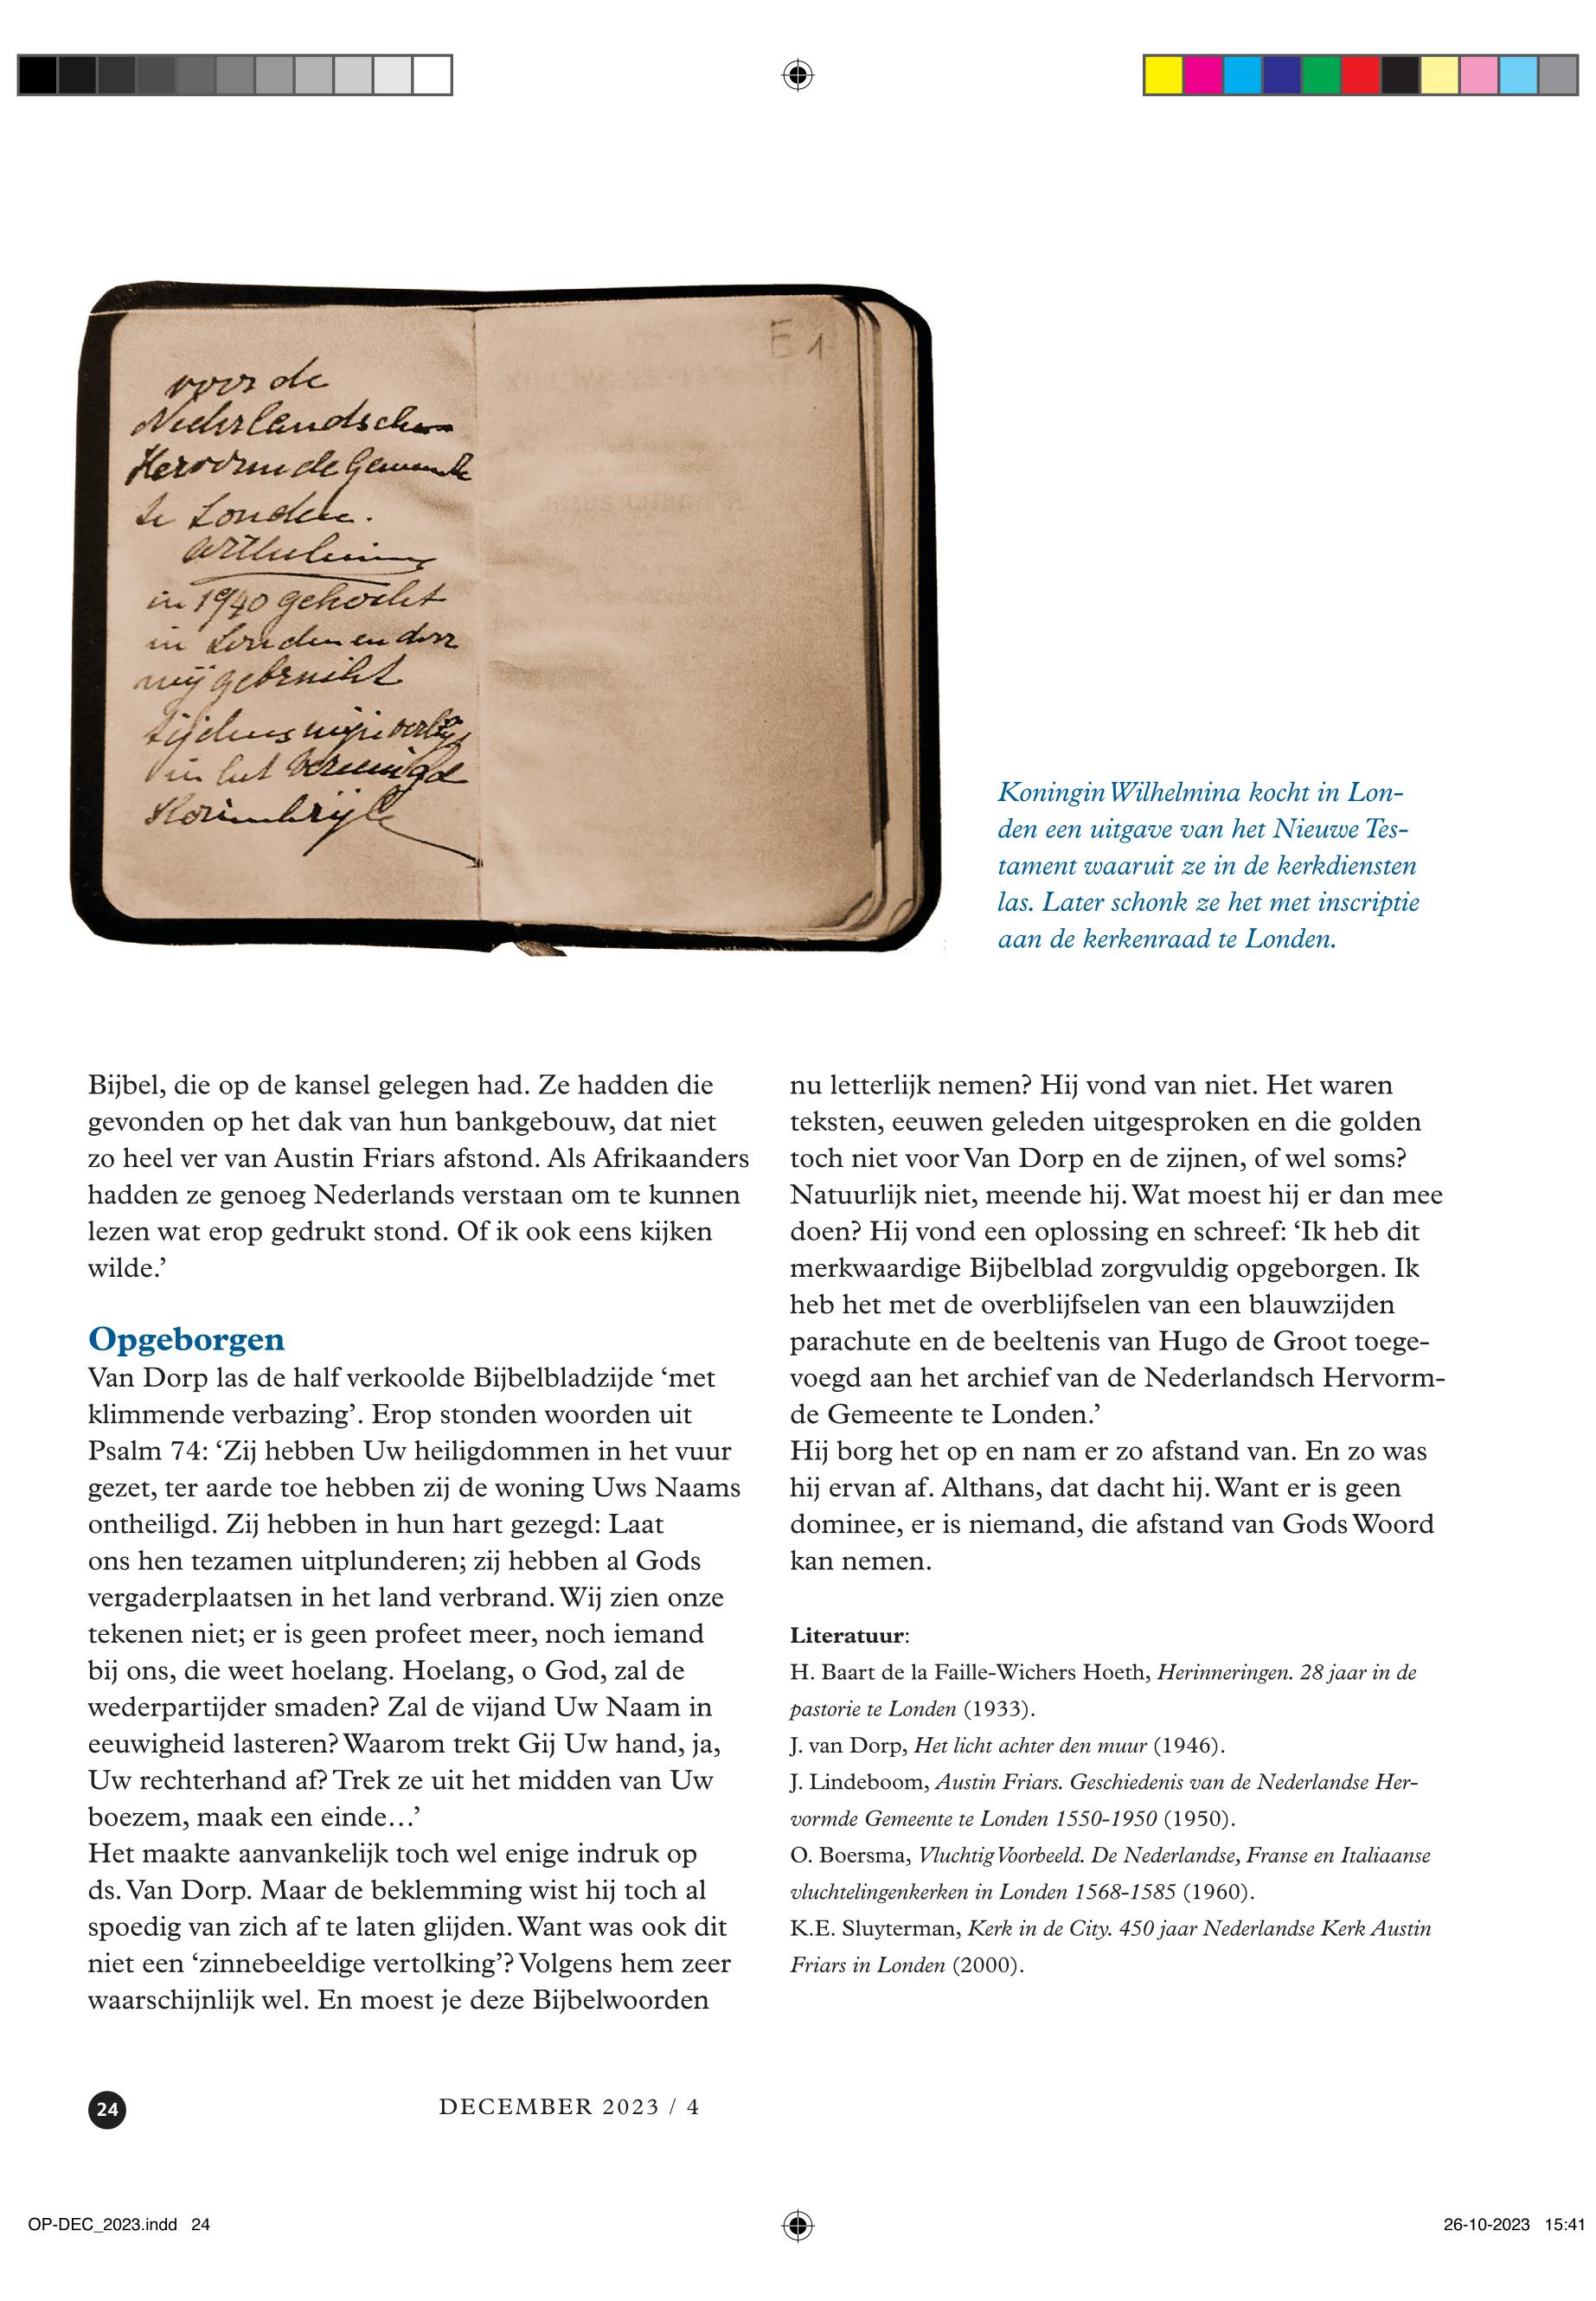 voor de
Nederlandsche
Hervormde Gemeente
te Londen.
Wilhelmina
in 1940 gekocht
in Londen en door
mij gebruikt
tijdens mijn verblijf
in het Vereenigd
Koninkrijk
E 1
Koningin Wilhelmina kocht in Lon-
den een uitgave van het Nieuwe Tes-
tament waaruit ze in de kerkdiensten
las. Later schonk ze het met inscriptie
aan de kerkenraad te Londen.
Bijbel, die op de kansel gelegen had. Ze hadden die
gevonden op het dak van hun bankgebouw, dat niet
zo heel ver van Austin Friars afstond. Als Afrikaanders
hadden ze genoeg Nederlands verstaan om te kunnen
lezen wat erop gedrukt stond. Of ik ook eens kijken
wilde.’
Opgeborgen
Van Dorp las de half verkoolde Bijbelbladzijde ‘met
klimmende verbazing’. Erop stonden woorden uit
Psalm 74: ‘Zij hebben Uw heiligdommen in het vuur
gezet, ter aarde toe hebben zij de woning Uws Naams
ontheiligd. Zij hebben in hun hart gezegd: Laat
ons hen tezamen uitplunderen; zij hebben al Gods
vergaderplaatsen in het land verbrand. Wij zien onze
tekenen niet; er is geen profeet meer, noch iemand
bij ons, die weet hoelang. Hoelang, o God, zal de
wederpartijder smaden? Zal de vijand Uw Naam in
eeuwigheid lasteren? Waarom trekt Gij Uw hand, ja,
Uw rechterhand af? Trek ze uit het midden van Uw
boezem, maak een einde…’
Het maakte aanvankelijk toch wel enige indruk op
ds. Van Dorp. Maar de beklemming wist hij toch al
spoedig van zich af te laten glijden. Want was ook dit
niet een ‘zinnebeeldige vertolking’? Volgens hem zeer
waarschijnlijk wel. En moest je deze Bijbelwoorden
nu letterlijk nemen? Hij vond van niet. Het waren
teksten, eeuwen geleden uitgesproken en die golden
toch niet voor Van Dorp en de zijnen, of wel soms?
Natuurlijk niet, meende hij. Wat moest hij er dan mee
doen? Hij vond een oplossing en schreef: ‘Ik heb dit
merkwaardige Bijbelblad zorgvuldig opgeborgen. Ik
heb het met de overblijfselen van een blauwzijden
parachute en de beeltenis van Hugo de Groot toege-
voegd aan het archief van de Nederlandsch Hervorm-
de Gemeente te Londen.’
Hij borg het op en nam er zo afstand van. En zo was
hij ervan af. Althans, dat dacht hij. Want er is geen
dominee, er is niemand, die afstand van Gods Woord
kan nemen.
Literatuur:
H. Baart de la Faille-Wichers Hoeth, Herinneringen. 28 jaar in de
pastorie te Londen (1933).
J. van Dorp, Het licht achter den muur (1946).
J. Lindeboom, Austin Friars. Geschiedenis van de Nederlandse Her-
vormde Gemeente te Londen 1550-1950 (1950).
O. Boersma, Vluchtig Voorbeeld. De Nederlandse, Franse en Italiaanse
vluchtelingenkerken in Londen 1568-1585 (1960).
K.E. Sluyterman, Kerk in de City. 450 jaar Nederlandse Kerk Austin
Friars in Londen (2000).
24
DECEMBER 2023 / 4
OP-DEC_2023.indd 24
26-10-2023 15:41